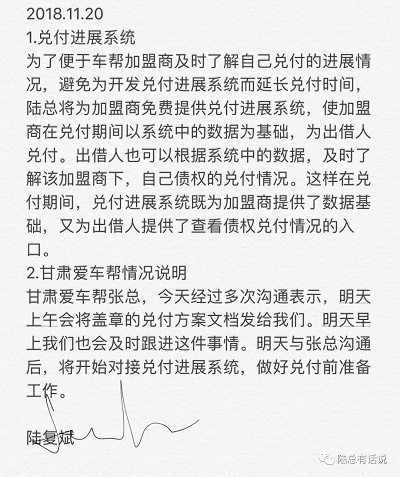 2018.11.20
1.兑付进展系统
为了便于车帮加盟商及时了解自己兑付的进展情
况，避免为开发兑付进展系统而延长兑付时间，
陆总将为加盟商免费提供兑付进展系统，使加盟
商在兑付期间以系统中的数据为基础，为出借人
兑付。出借人也可以根据系统中的数据，及时了
解该加盟商下，自己债权的兑付情况。这样在兑
付期间，兑付进展系统既为加盟商提供了数据基
础，又为出借人提供了查看债权兑付情况的入
口。
2.甘肃爱车帮情况说明
甘肃爱车帮张总，今天经过多次沟通表示，明天
上午会将盖章的兑付方案文档发给我们。明天早
上我们也会及时跟进这件事情。明天与张总沟通
后，将开始对接兑付进展系统，做好兑付前准备
工作。
陆复斌
陆总有话说